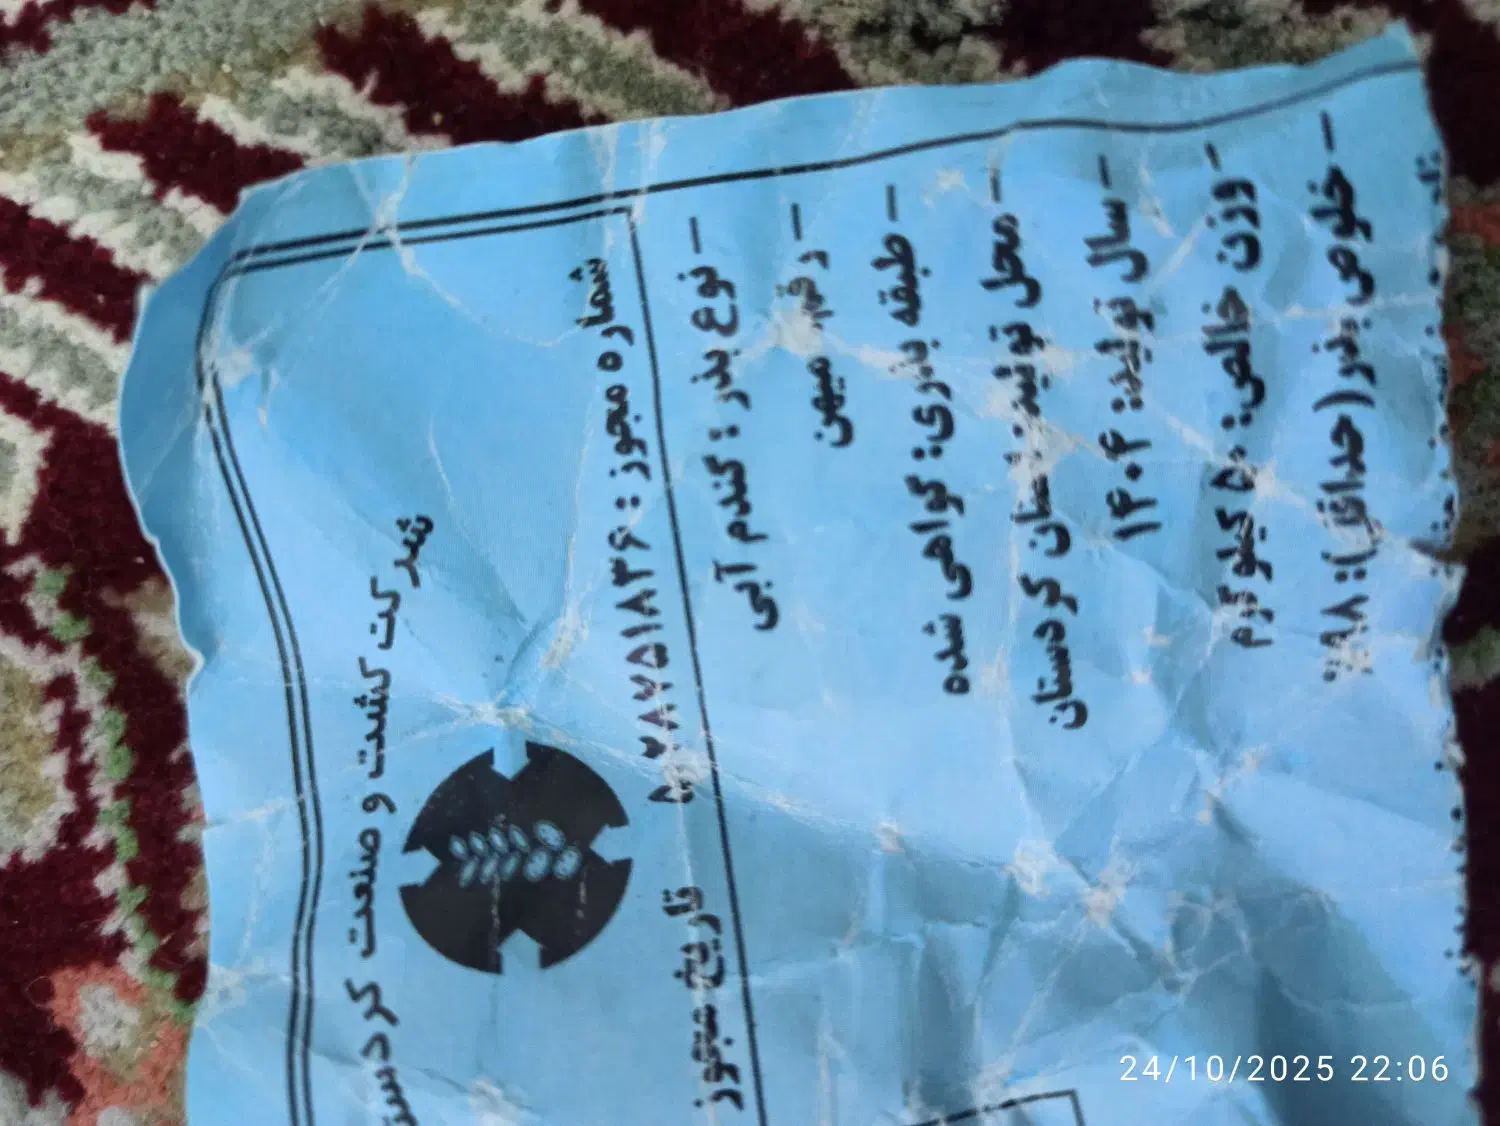 شرکت کشت و صنعت کردستا
شماره مجوز: ۵۰۲۸۷۵۱۸۳۶
تاریخ مجوز
– نوع بذر: گندم آبی
– رقم: میهن
– طبقه بذری: گواهی شده
– محل تولید: استان کردستان
– سال تولید: ۱۴۰۴
– وزن خالص: ۵۰ کیلوگرم
– خلوص بذر (حداقل): ۹۸٪
24/10/2025 22:06